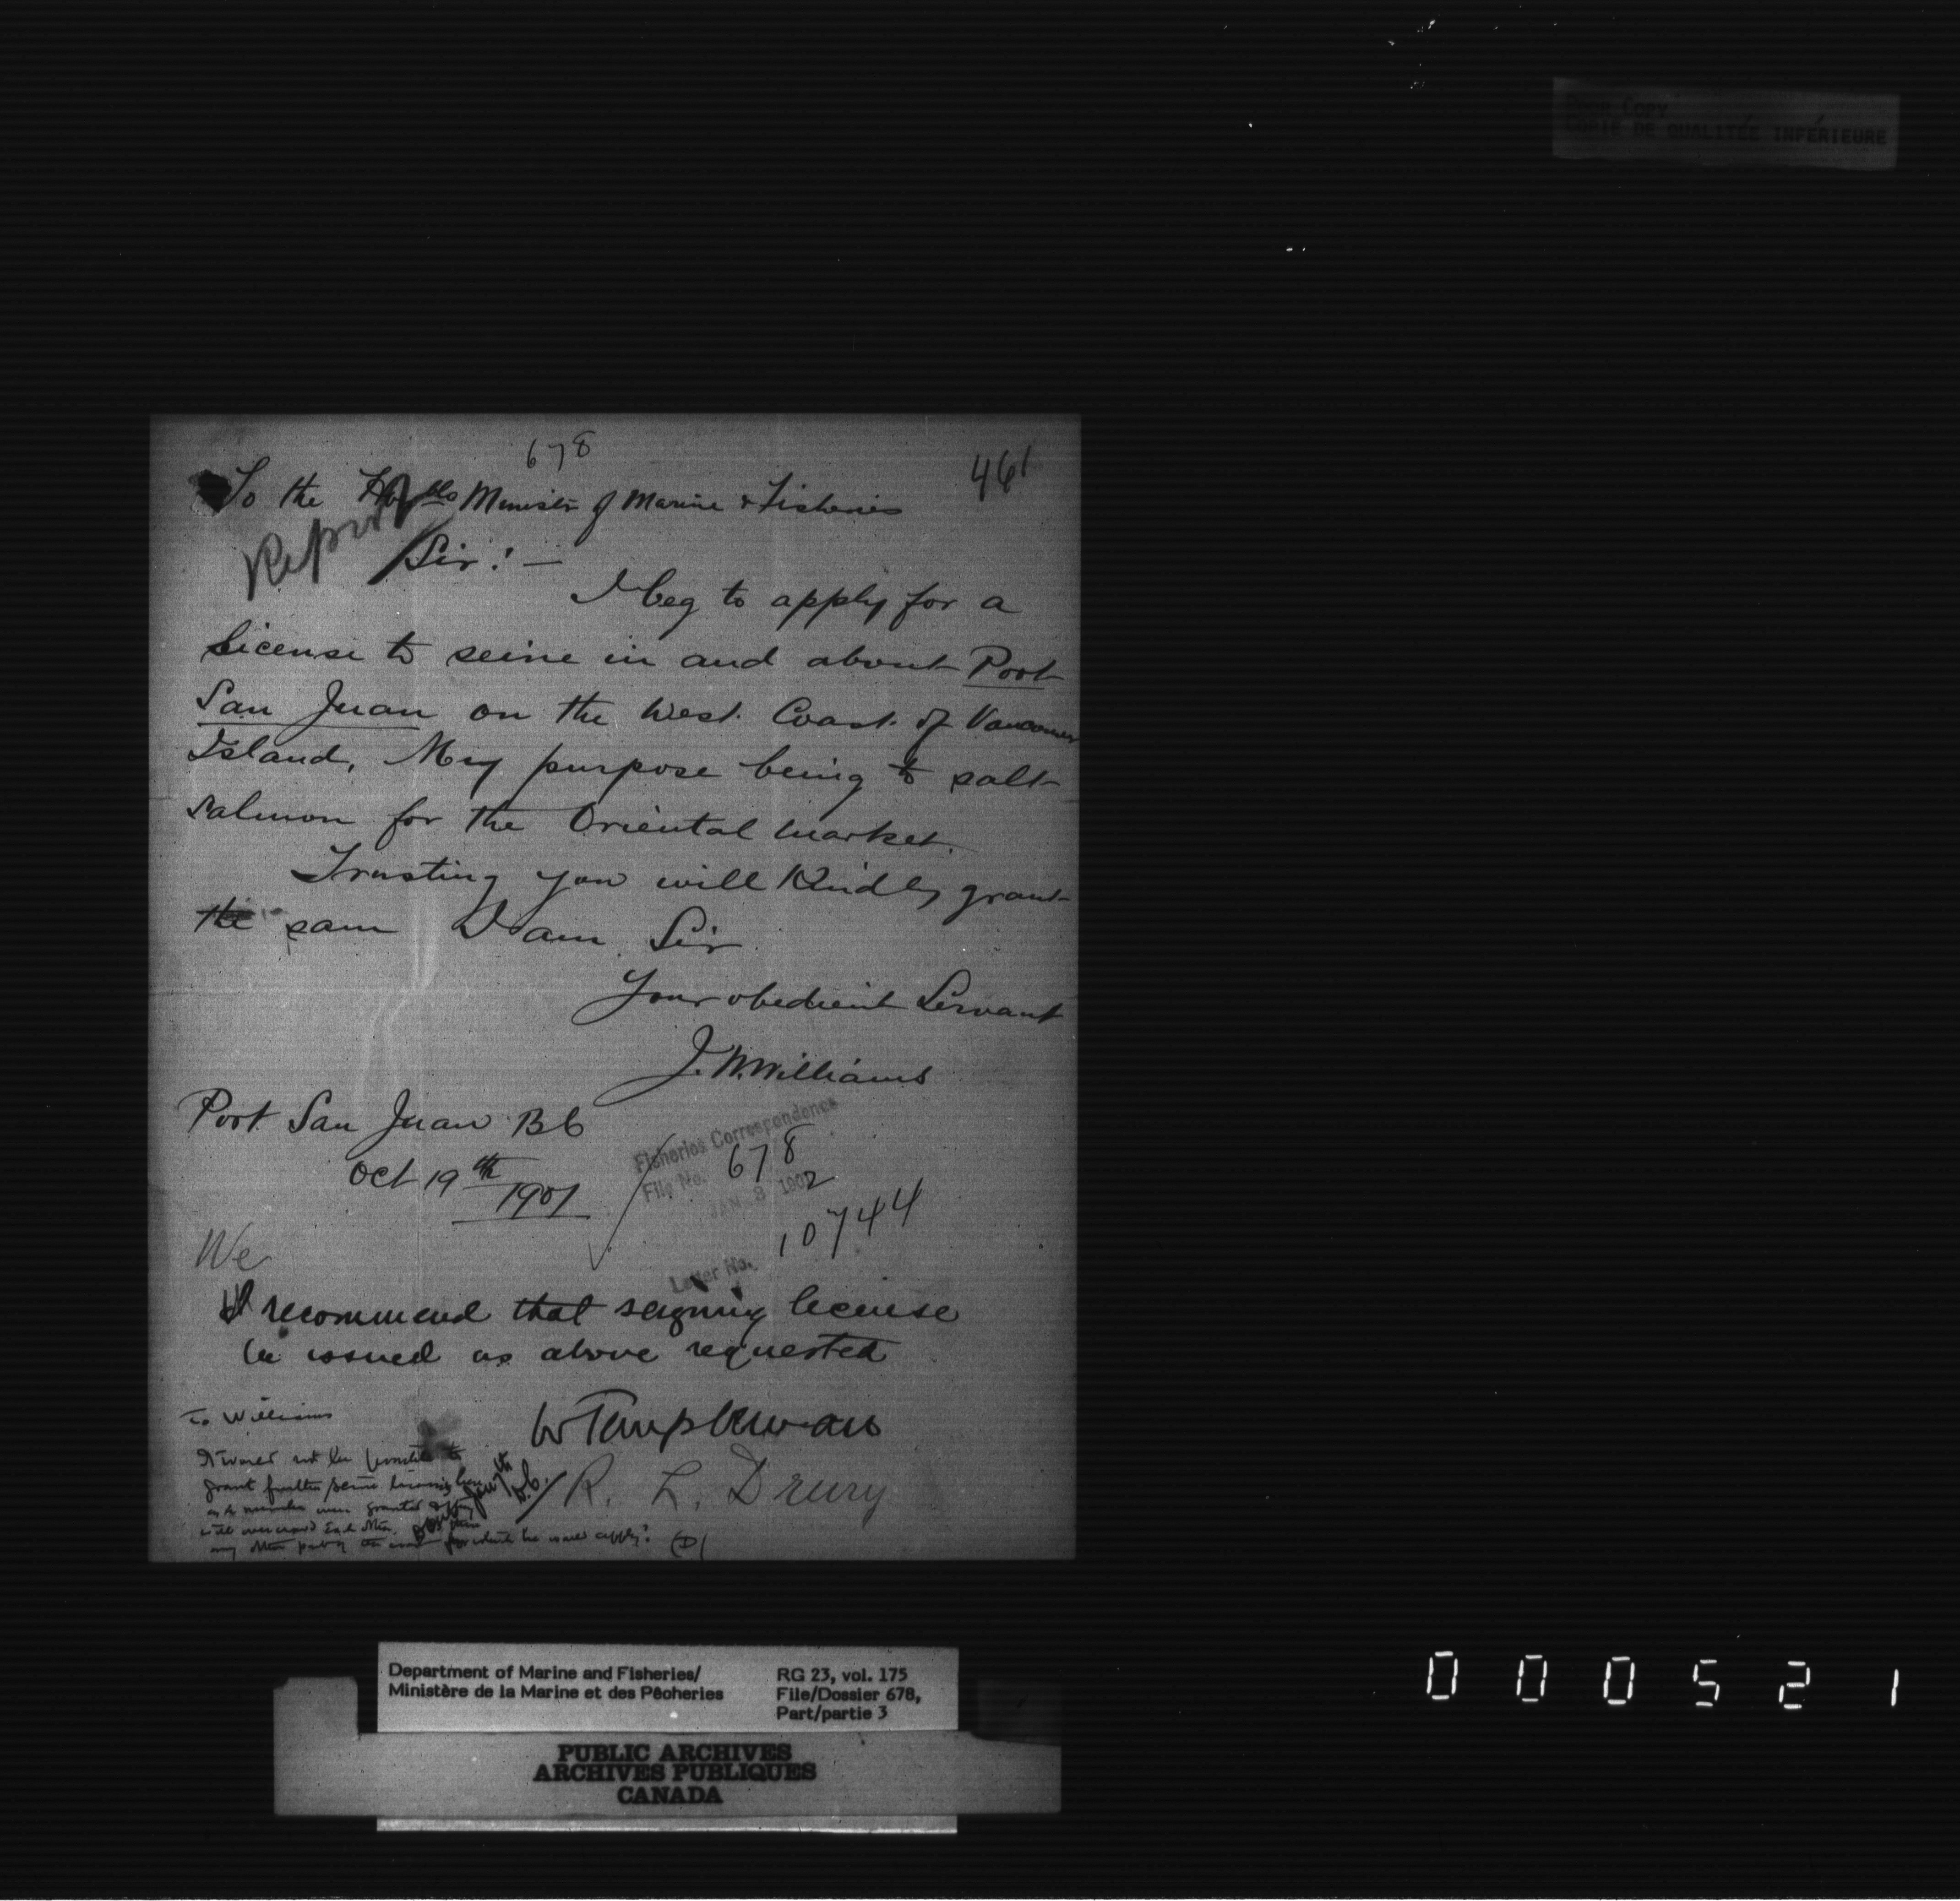 POOR COPY
COPIE DE QUALITÉE INFÉRIEURE
678
461
To the Honble Minister of Marine & Fisheries
Report
Sir! —
I beg to apply for a
License to seine in and about Port
San Juan on the West Coast of Vancouver
Island, My purpose being to salt
salmon for the Oriental market.
Trusting you will Kindly grant
the sam I am Sir
Your obedient Servant
J. W. Williams
Port San Juan BC
Oct 19th 1901
Fisheries Correspondence
File No. 678
JAN 3 1902
10744
Letter No.
We
I recommend that seigning license
be issued as above requested
W Templeman
R. L. Drury
To Williams
It would not be possible to
grant further seine
as a number were granted
will overcrowd each other.
any other part of the coast for which he would apply?
Department of Marine and Fisheries/ RG 23, vol. 175
Ministère de la Marine et des Pêcheries File/Dossier 678,
Part/partie 3
PUBLIC ARCHIVES
ARCHIVES PUBLIQUES
CANADA
000521